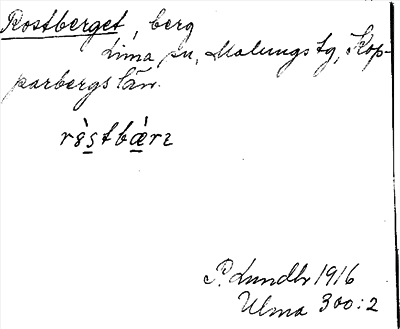 Rostberget, berg
Lima sn, Malungs tg, Kop-
parbergs län.
P. Lundh 1916
Ulma 300:2